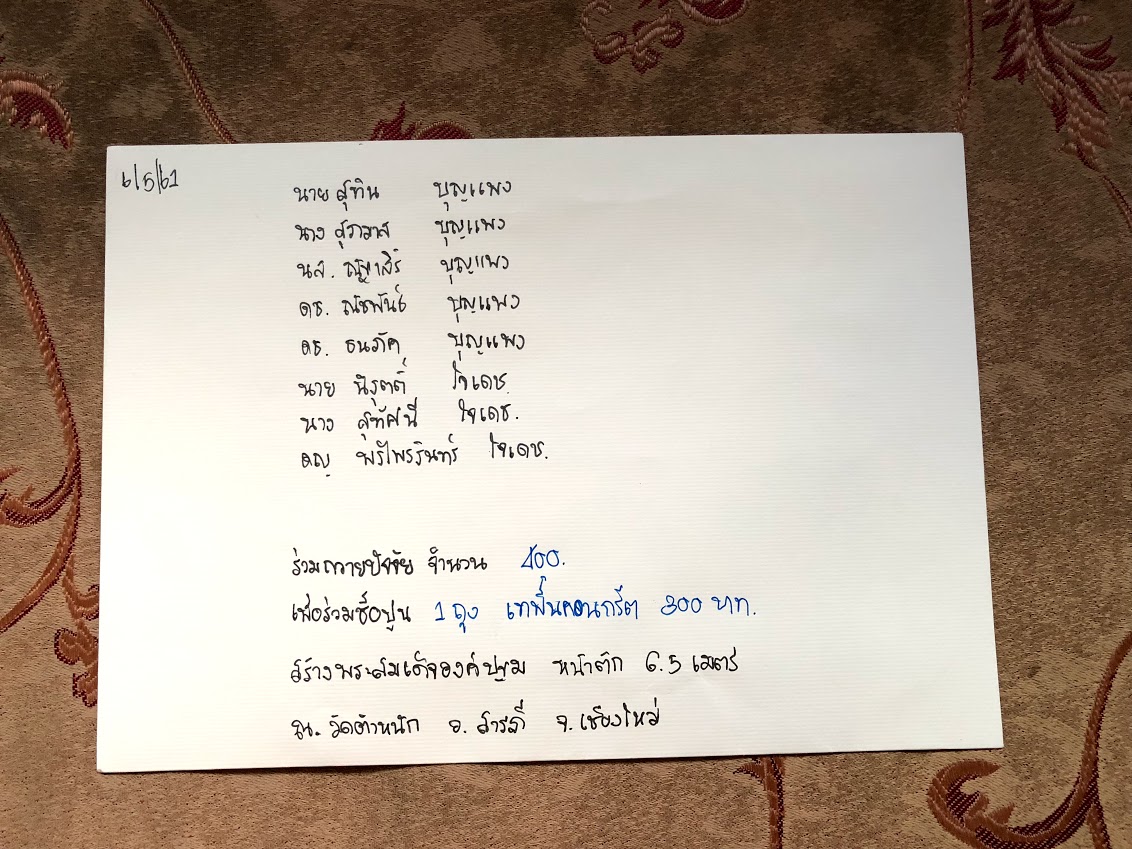 6/5/61
นาย สุทิน บุญแพง
นาง สุภาวาส บุญแพง
นส. บุญแพง
ดช. ณัชพันธ์ บุญแพง
ดช. ธนภัค บุญแพง
นาย นิรุตต์ ใจเดช.
นาง สุทัศนี ใจเดช.
ดญ พรไพรรินทร์ ใจเดช.
ร่วมถวายปัจจัย จำนวน 400.
เพื่อร่วมซื้อปูน 1 ถุง เทพื้นคอนกรีต 300 บาท.
สร้างพระสมเด็จองค์ปฐม หน้าตัก 6.5 เมตร
ณ. วัดตำหนัก อ. สารภี จ. เชียงใหม่